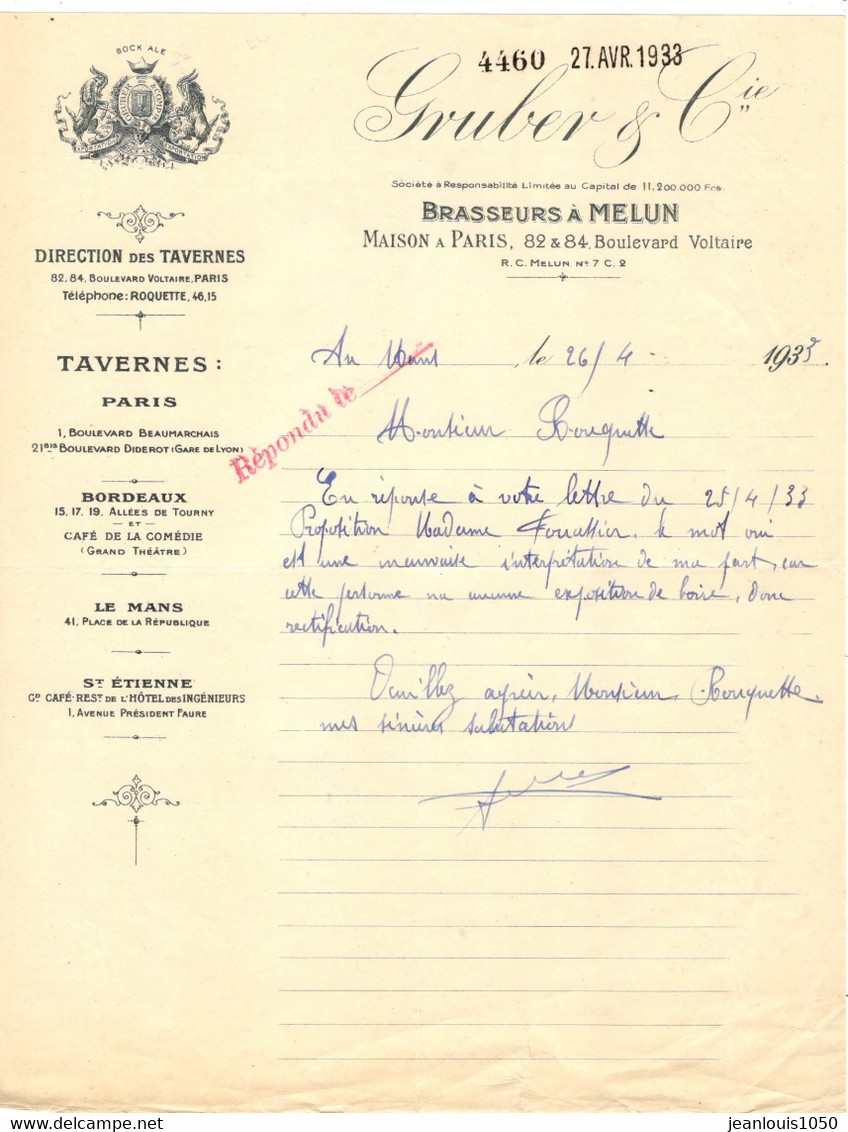 BOCK ALE
GRUBER & COMP
EXPORTATION EXPORTATION
4460 27.AVR.1933
Gruber & Cie
Société à Responsabilité Limitée au Capital de 11,200,000 Fcs.
BRASSEURS À MELUN
MAISON A PARIS, 82 & 84, Boulevard Voltaire
R.C. MELUN Nº 7 C. 2
DIRECTION DES TAVERNES
82, 84, BOULEVARD VOLTAIRE, PARIS
Téléphone: ROQUETTE, 46,15
TAVERNES:
PARIS
1, BOULEVARD BEAUMARCHAIS
21BIS BOULEVARD DIDEROT (GARE DE LYON)
BORDEAUX
15, 17, 19, ALLÉES DE TOURNY
ET
CAFÉ DE LA COMÉDIE
(GRAND THÉÂTRE)
LE MANS
41, PLACE DE LA RÉPUBLIQUE
ST ÉTIENNE
GD CAFÉ-REST. DE L'HÔTEL DES INGÉNIEURS
1, AVENUE PRÉSIDENT FAURE
Au Mans le 26/4 1933.
Répondu le
Monsieur Rouquette
En réponse à votre lettre du 25/4/33
Proposition Madame le mot oui
est une mauvaise interprétation de ma part, car
cette personne na aucune exposition de boire, donc
rectification.
Veuillez agréer, Monsieur Rouquette.
mes sincères salutation
jeanlouis1050